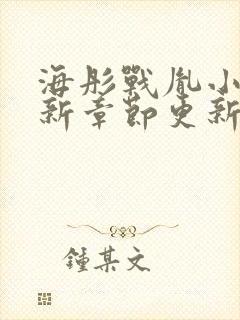 海彤戰胤小
新章節更新
鍾某文